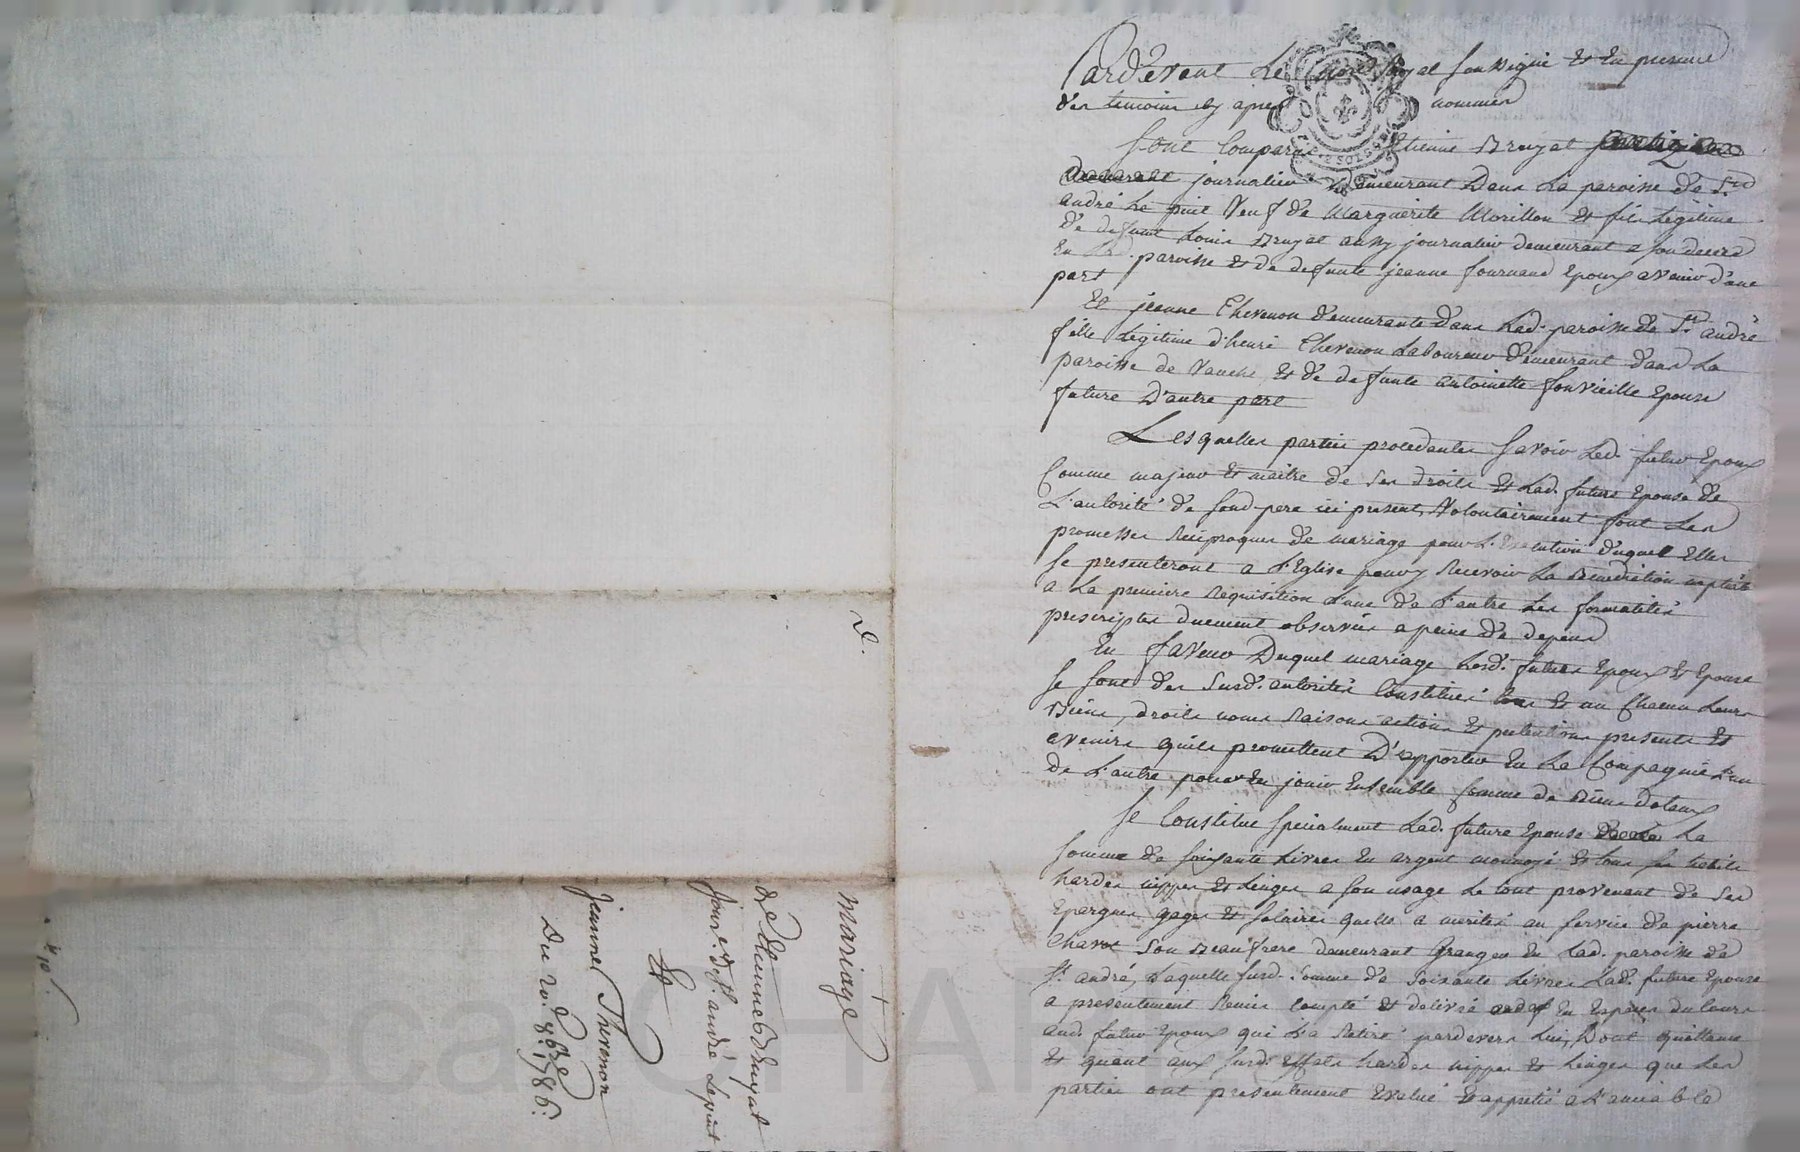 Pardevant Le Notre Royal soussigné Et En presence
des temoins cy apres nommés
Sont Comparus Etienne Bruyat
journalier demeurant Dans La paroisse de St
andré Le puit Veuf de Marguerite Morillon Et fils Legitime
de defunt Louis Bruyat aussy journalier demeurant a son deces
En Lad. paroisse Et de defunte jeanne fournand Epoux avenir d'une
part
Et jeanne Thevenon demeurante dans Lad. paroisse de St andré
fille Legitime d'henri Thevenon Laboureur demeurant dans La
paroisse de Et de defunte antoinette fonvieille Epouse
future D'autre part
Lesquelles parties procedantes Savoir Led. futur Epoux
Comme majeur Et maitre de Ses droits Et Lad. future Epouse de
L'autorité de Sond. pere ici present, Volontairement font Les
promesses Reciproques de mariage pour L'Execution duquel Elles
Se presenteront a L'Eglise pour y Recevoir La Benediction nuptiale
a La premiere Requisition L'une de L'autre Les formalités
prescriptes duement observées a peine de depens
En faveur Duquel mariage Lesd. futurs Epoux Et Epouse
Se sont des Susd. autorités Constitués tous Et un Chacun Leurs
Biens, droits noms Raisons actions Et pretentions presents Et
avenirs quils promettent D'apporter En La Compagnie L'un
de L'autre pour En jouir Ensemble Comme de Biens dotaux
Se Constitue specialment Lad. future Epouse La
Somme de soixante Livres En argent monnoyé Et tous ses habits
hardes nippes Et Linges a son usage Le tout provenant de Ses
Epargnes gages Et salaires quelle a merités au service de pierre
Chavot Son Beaufrere demeurant Granger En Lad. paroisse de
St andré, Laquelle Susd. Somme de Soixante Livres Lad. future Epouse
a presentement Remis Compté Et delivré En Especes du Cours
aud. futur Epoux qui L'a Retiré pardevers Lui, Dont quittance
Et quant aux susd. Effets hardes nippes Et Linges que Les
parties ont presentement Evalué Et apprecié a L'amiable
D.
mariage
de Etienne bruyat
Jour. de St andré Lepuit
Et
jeanne Thevenon
Du 20. 8bre 1786.